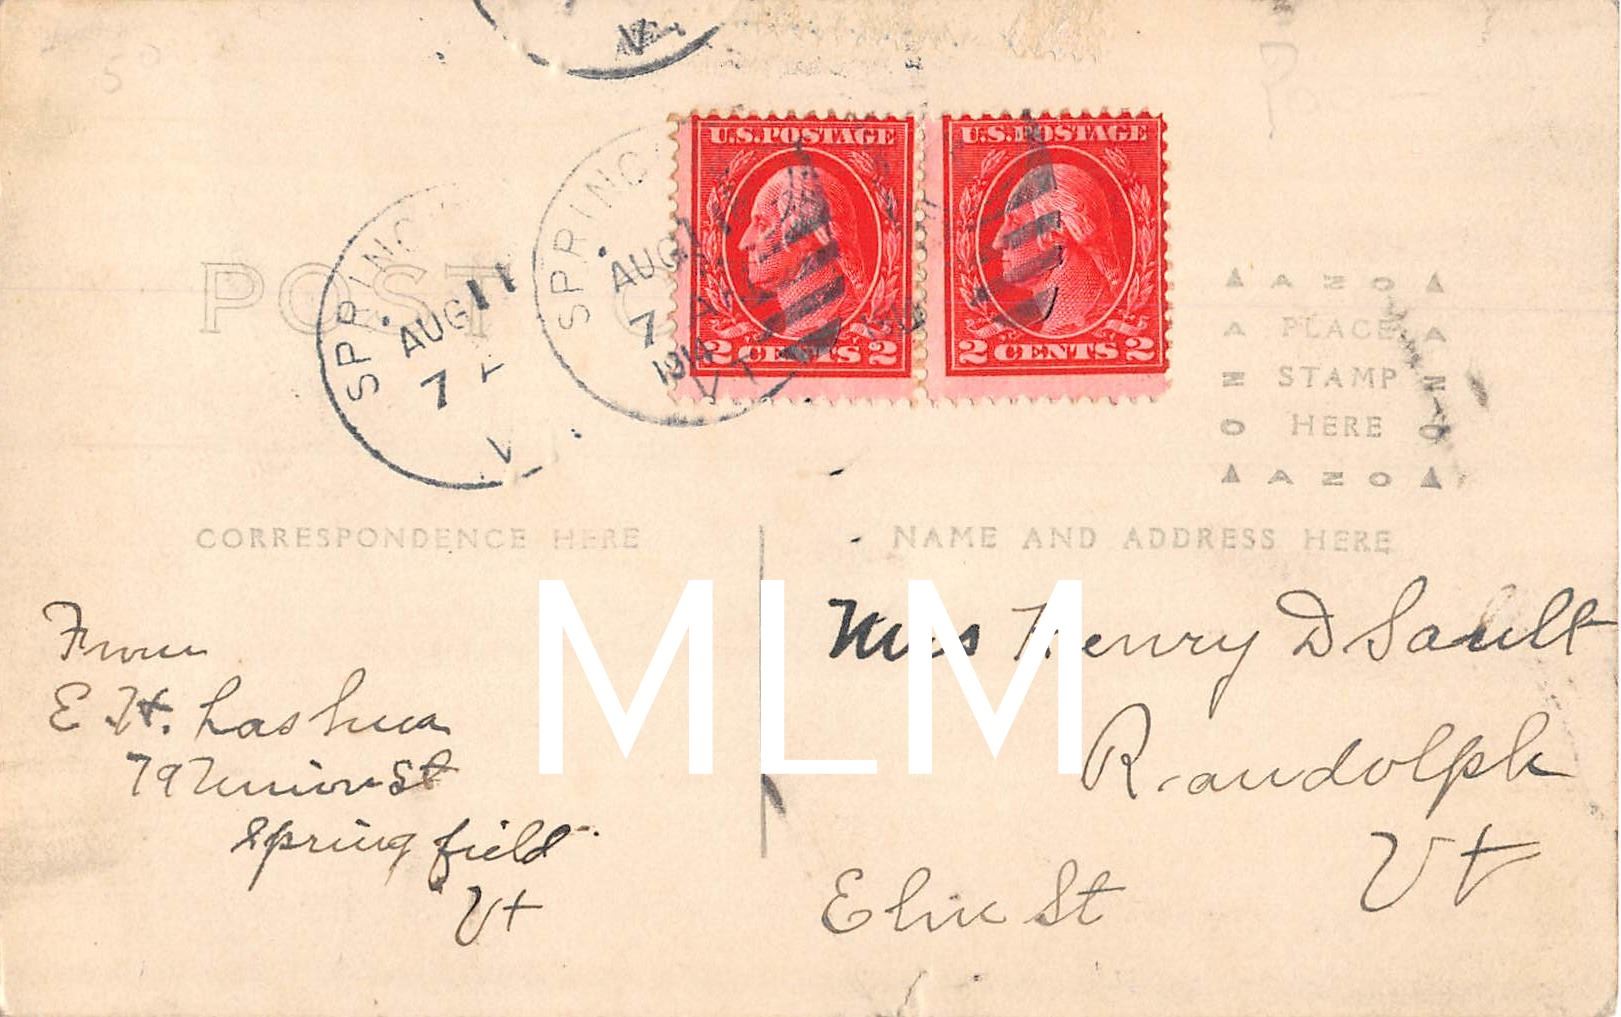 POST C
SPRING
AUG 11
7 A
V
SPRING
AUG 11
7 A
1914
VT.
U.S. POSTAGE
2 CENTS 2
U.S. POSTAGE
2 CENTS 2
AZO
PLACE
STAMP
HERE
AZO
CORRESPONDENCE HERE
NAME AND ADDRESS HERE
MLM
From
E H. Lashua
79 Union St
Springfield
Vt
Mrs Henry D Sault
Randolph
Vt
Elm St